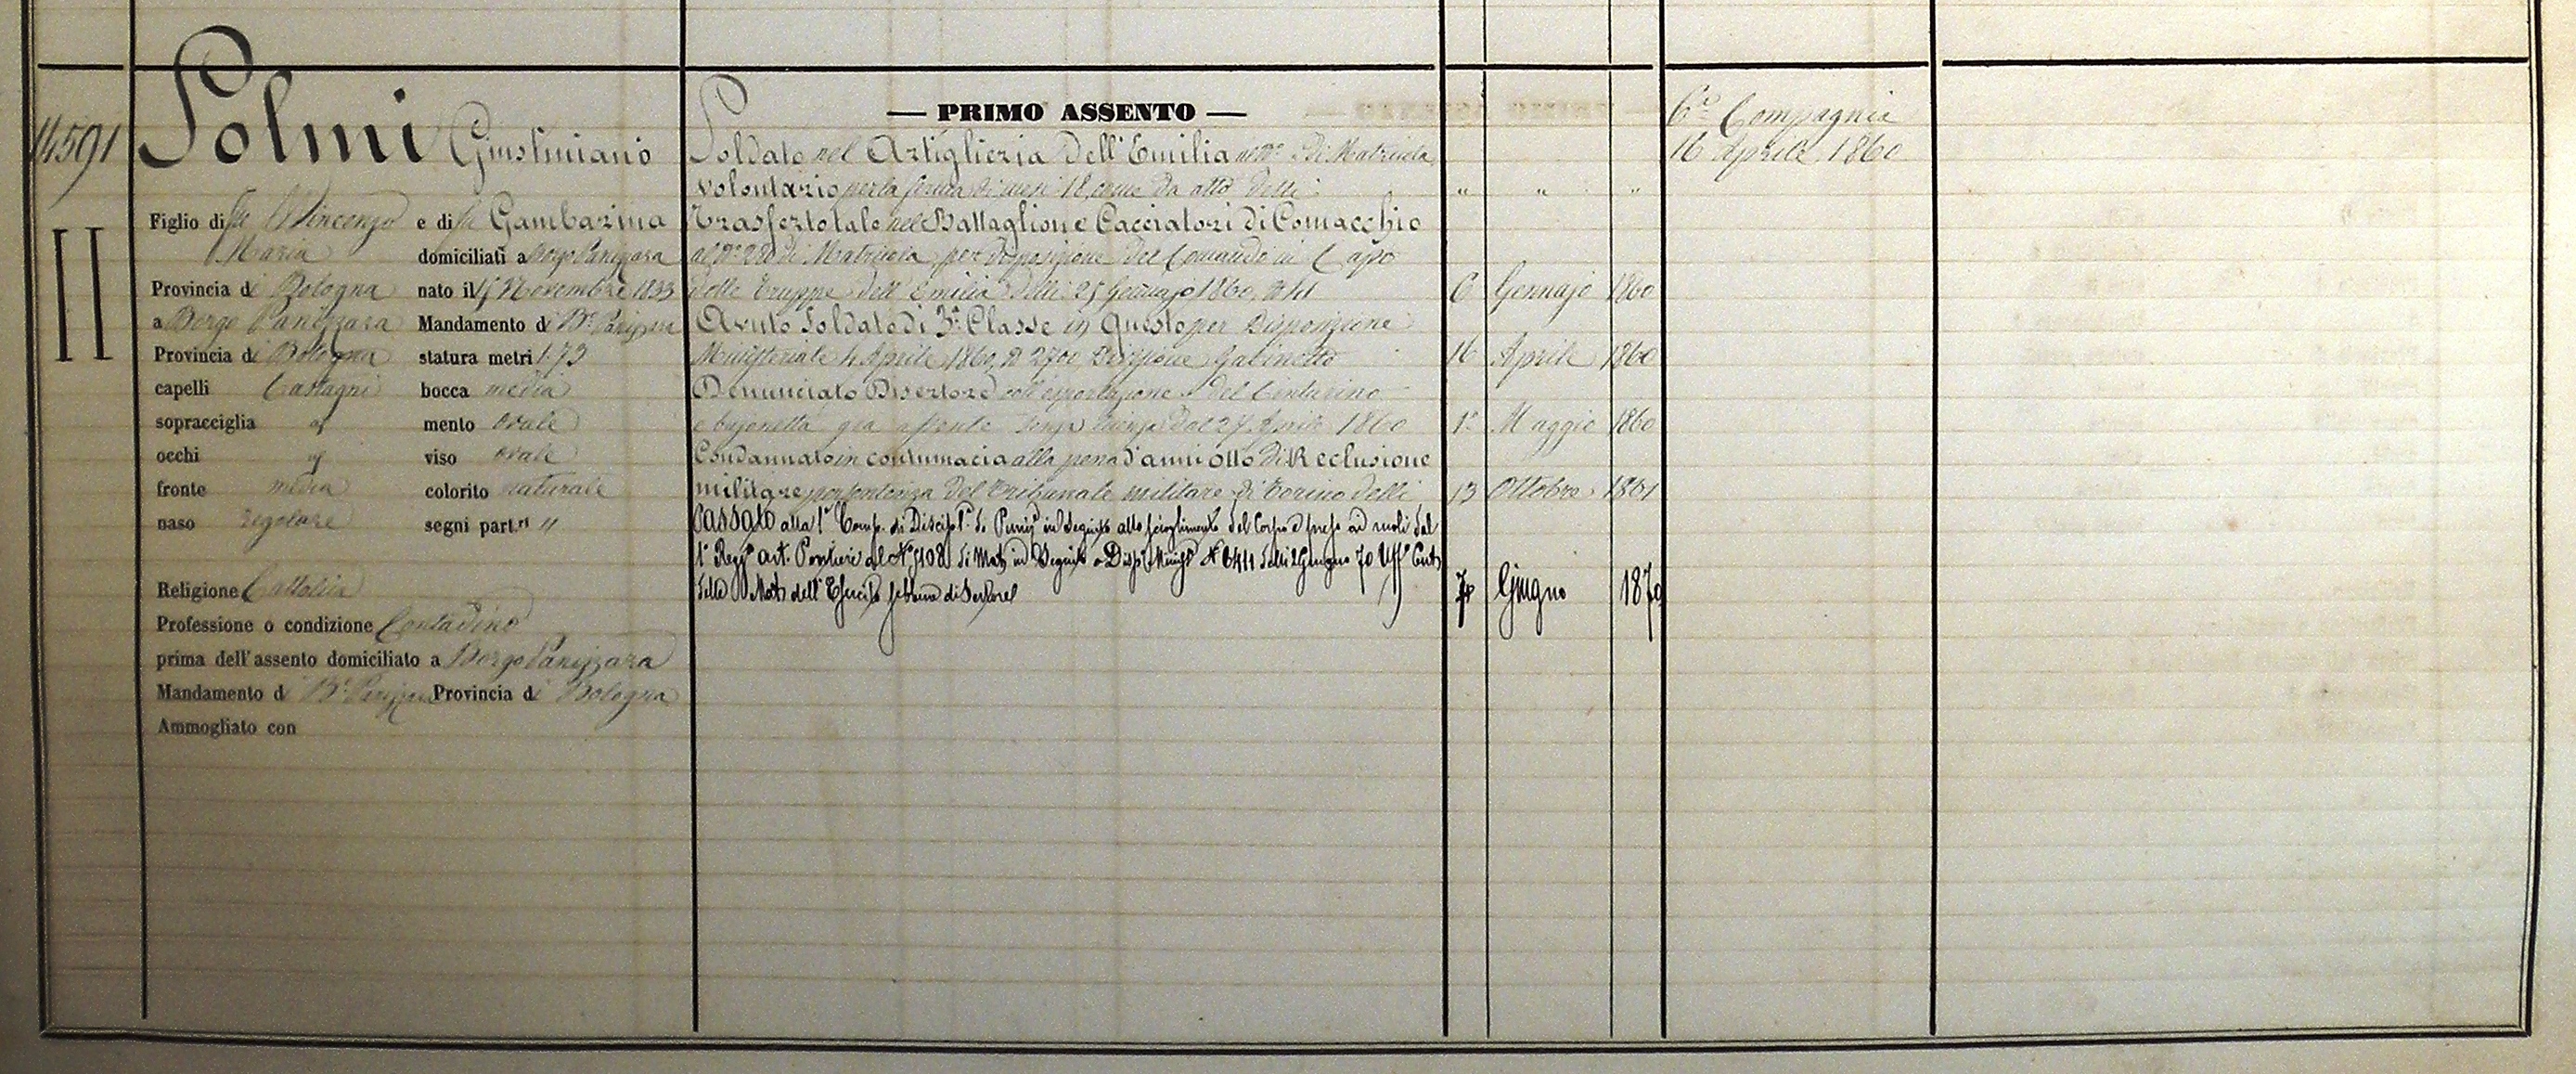 14591
II
Solmi Giustiniano
Figlio di fu Vincenzo e di fu Gambarina
Maria domiciliati a Borgo Panizzara
Provincia di Bologna nato il Novembre 1833
a Borgo Panizzara Mandamento di B.o Panizzara
Provincia di Bologna statura metri 1.73
capelli Castagni bocca media
sopracciglia mento ovale
occhi viso ovale
fronte media colorito naturale
naso regolare segni part.ri "
Religione Cattolica
Professione o condizione Contadino
prima dell'assento domiciliato a Borgo Panizzara
Mandamento di B.o Panizzara Provincia di Bologna
Ammogliato con
— PRIMO ASSENTO —
Soldato nel Artiglieria dell'Emilia al N.o di Matricola
volontario per la ferma di mesi 18, come da atto delli " " "
Trasferto tale nel Battaglione Cacciatori di Comacchio
al N.o 280 di Matricola per disposizione del Comando in Capo
delle Truppe dell'Emilia delli 25 Gennajo 1860, N 41 6 Gennajo 1860
Avuto Soldato di 3.a Classe in Questo per Disposizione
Ministeriale 4 Aprile 1860, N 2700 Divisione Gabinetto 16 Aprile 1860
Denunciato Disertore con esportazione del Centurino
e bajonetta già assente senza licenza dal 27 Aprile 1860 1.o Maggio 1860
Condannato in contumacia alla pena d'anni otto di Reclusione
militare per sentenza del Tribunale militare di Torino delli 13 Ottobre 1861
Passato alla 1.a Comp. di Discip.a di Puniz. in seguito allo scioglimento del Corpo e preso ai ruoli dal
1.o Regg.o Art. Pontieri al N.o 5108 di Mat.a in Seguito a Disp. Minist. N 6411 delli 2 Giugno 70 Uff.o Cent.
della Mat.a dell'Esercito sebbene disertore 7 Giugno 1870
6.a Compagnia
16 Aprile 1860